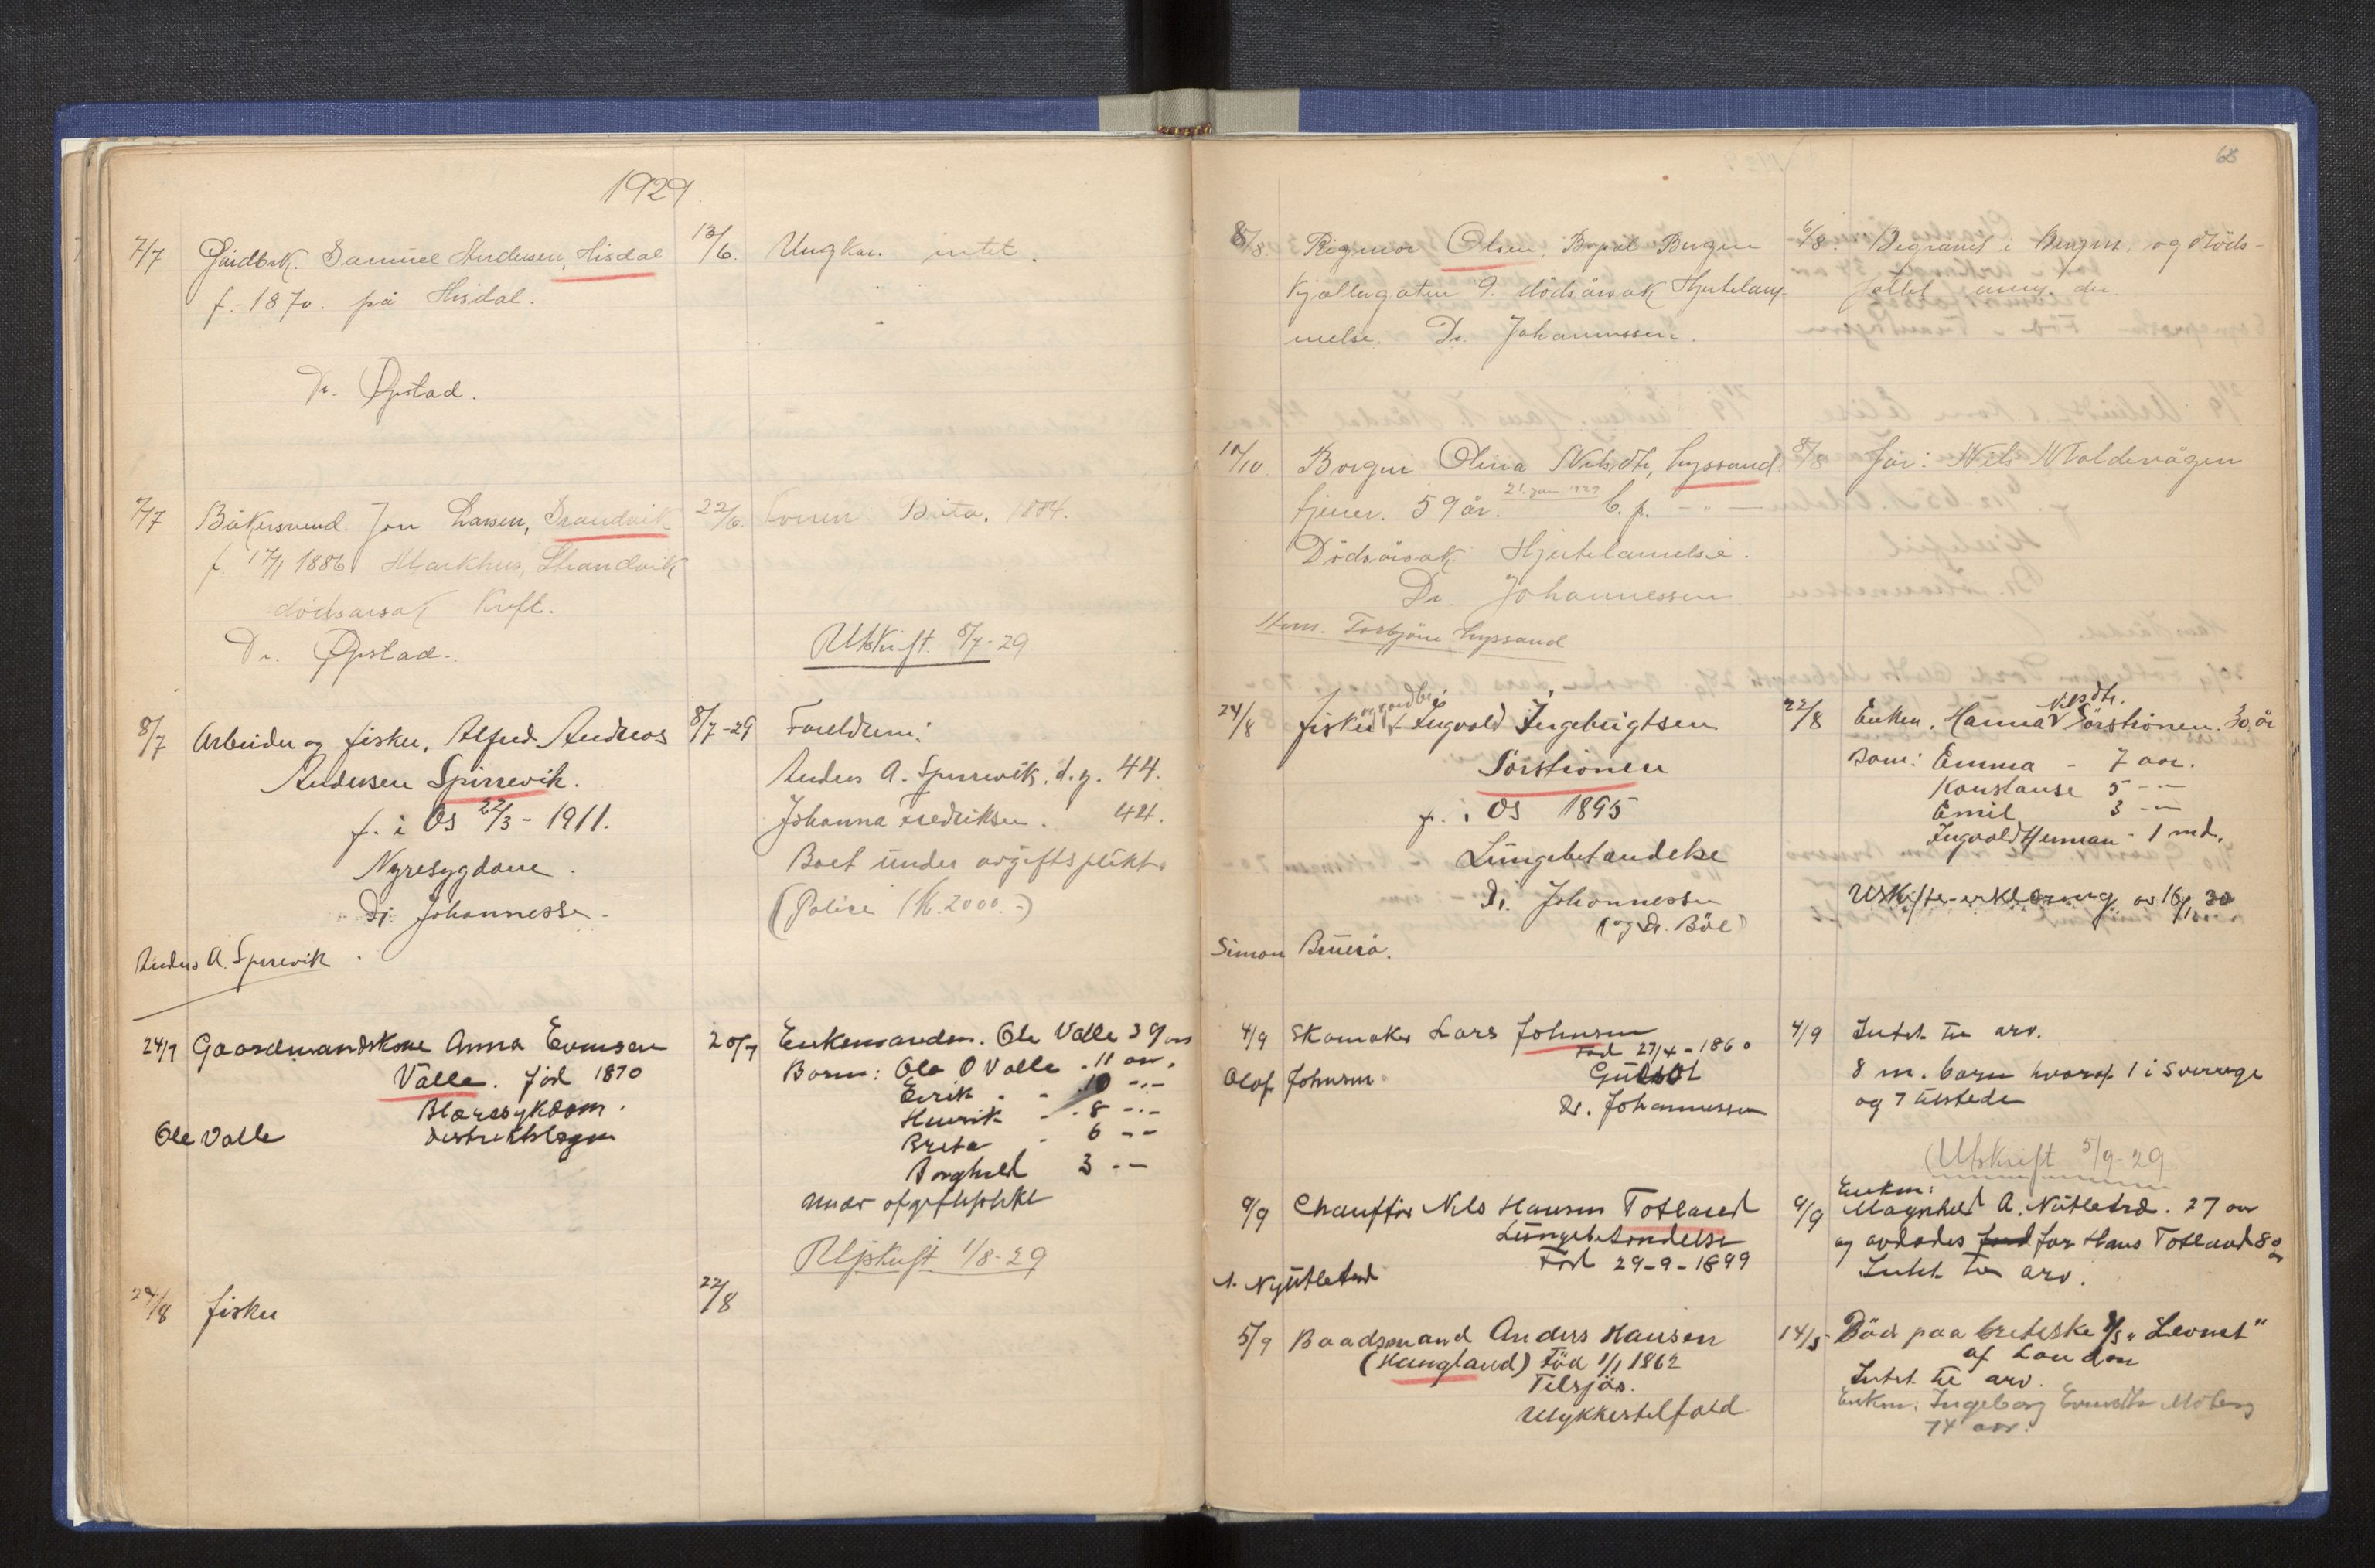 1929
7/7 Gårdbrk. Samuel Andersen, Hisdal 13/6. Ungkar. intet.
f. 1870. på Hisdal.
Dr. Øpstad.
7/7 Bakersvend. Jon Larsen, Strandvik 22/6. Konen Brita, 1884.
f. 17/1 1886 Markhus, Strandvik
dödsarsak Kreft.
Dr. Øpstad. Utskrift. 8/7-29
8/7 Arbeider og fisker, Alfred Andreas 8/7-29 Foreldrene:
Andersen Spirrevik. Anders A. Spirrevik, d.y. 44.
f. i Os 22/3-1911. Johanna Fredriksen. 44.
Nyresygdom. Boet under avgiftsplikt.
Dr. Johannessen. (Polise Kr. 2000.-)
Anders A. Spirevik
24/7 Gaardmandskone Anna Evensen 20/7 Enkemanden. Ole Valle 39 aar
Valle. Föd 1870 Barn: Ole O Valle - 11 aar.
Blæresykdom. Eirik - 10 -"-
Distriktslægen Henrik - 8 -"-
Ole Valle Brita - 6 -"-
Borghild 3 -"-
Under afgiftsplikt
Utskrift 1/8-29
24/8 fisker 22/8
68
8/8. Rigmor Olsen, Bopæl Bergen 6/8. Begravet i Bergen. og döds-
Kjellergaten 9. dödsårsak Hjertelam- fallet anm. der.
melse. Dr. Johannessen.
10/10. Borgni Olina Nilsdtr, Lyssand 8/8 Far: Nils Moldevågen
tjener. 59 år. 21. jan 1929 C.p. - " -
Dödsårsak Hjertelamelse.
Dr. Johannessen
Anm. Torbjörn Lyssand
24/8 fisker og gardbr. Ingvald Ingebrigtsen 22/8 Enken. Hanna Nilsdtr. Sörströnen. 30 år
Sörströnen Barn: Emma - 7 aar.
f. i Os 1895 Konstanse 5 -"-
Lungebetændelse Emil 3 -"-
Dr. Johannessen Ingvald Herman - 1 md.
(og Dr. Böe) Uskifte-erklæring av 16/1 30
Simon Bruerö.
4/9 Skomaker Lars Johnsen 4/9 Intet til arv.
Föd 27/4-1860
Olof Johnsen Gulsot 8 m. barn hvoraf 1 i Sverrige
Dr. Johannessen og 7 tilstede
(Utskrift 5/9-29
9/9 Chauffør Nils Hansen Totland 9/9 Enkm: Magnhild A. Nütletrd. 27 aar
Lungebetændelse og avdødes far Hans Totland 80 aar
Föd 29-9-1899 Intet til arv.
A. Nyütletrd
5/9 Baadsmand Anders Hansen 14/5 Död paa britiske S/S "Levnet"
(Haugland) Föd 1/1 1862 af London
Tilsjös. Intet til arv.
Ulykkestilfæld Enkm: Ingeborg Evensdtr Moberg
74 aar.